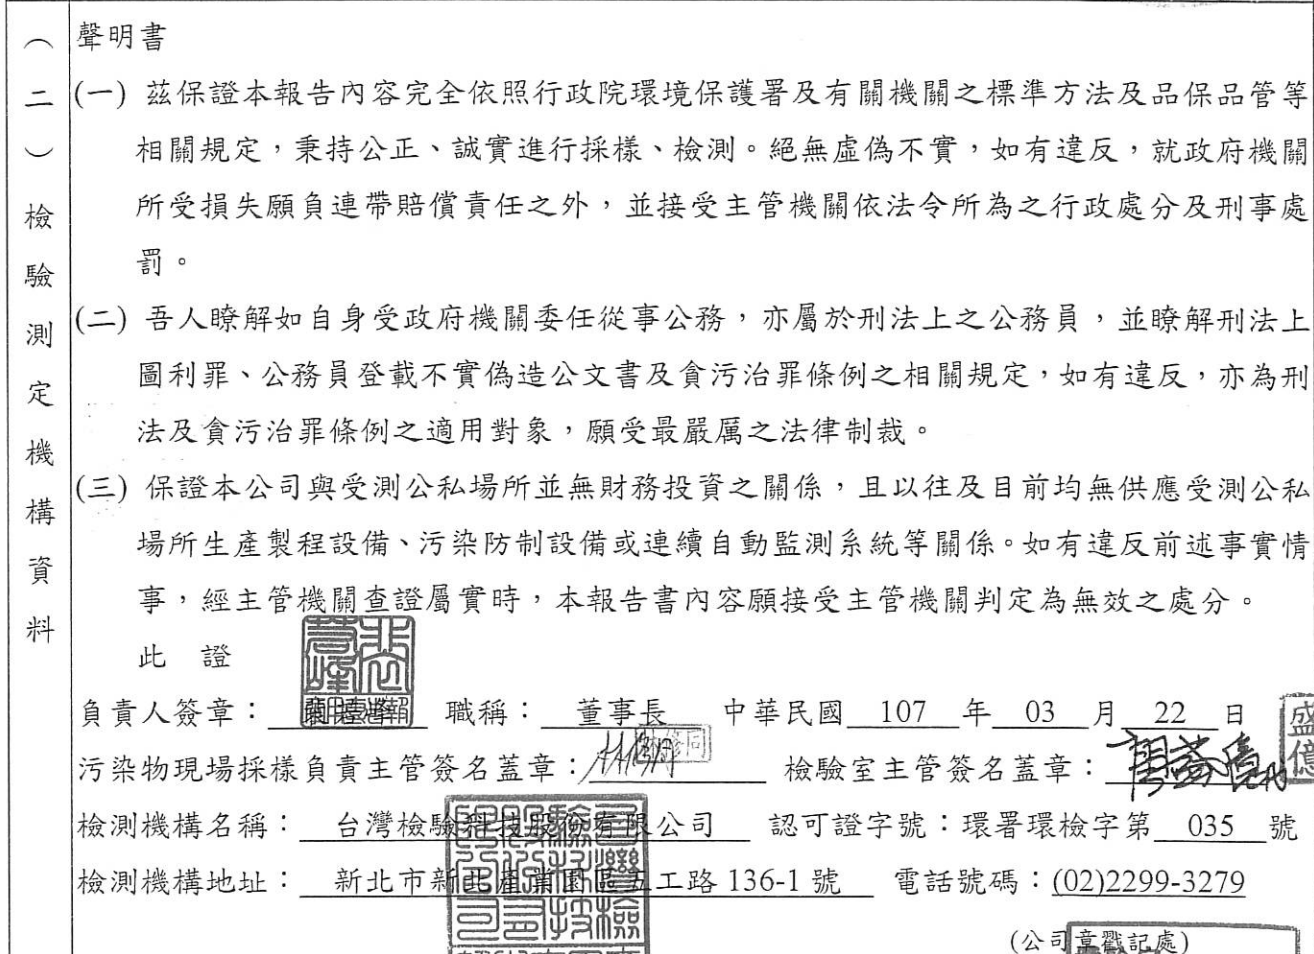 （二）檢驗測定機構資料
聲明書
(一) 茲保證本報告內容完全依照行政院環境保護署及有關機關之標準方法及品保品管等
相關規定，秉持公正、誠實進行採樣、檢測。絕無虛偽不實，如有違反，就政府機關
所受損失願負連帶賠償責任之外，並接受主管機關依法令所為之行政處分及刑事處
罰。
(二) 吾人瞭解如自身受政府機關委任從事公務，亦屬於刑法上之公務員，並瞭解刑法上
圖利罪、公務員登載不實偽造公文書及貪污治罪條例之相關規定，如有違反，亦為刑
法及貪污治罪條例之適用對象，願受最嚴厲之法律制裁。
(三) 保證本公司與受測公私場所並無財務投資之關係，且以往及目前均無供應受測公私
場所生產製程設備、污染防制設備或連續自動監測系統等關係。如有違反前述事實情
事，經主管機關查證屬實時，本報告書內容願接受主管機關判定為無效之處分。
此 證
負責人簽章： 職稱： 董事長 中華民國 107 年 03 月 22 日
污染物現場採樣負責主管簽名蓋章： 檢驗室主管簽名蓋章：
盛億
檢測機構名稱： 台灣檢驗科技股份有限公司 認可證字號：環署環檢字第 035 號
檢測機構地址： 新北市新北產業園區五工路 136-1 號 電話號碼：(02)2299-3279
(公司章戳記處)